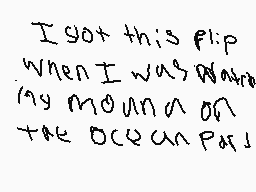 I got this flip
when I was
my moana on
the ocean part